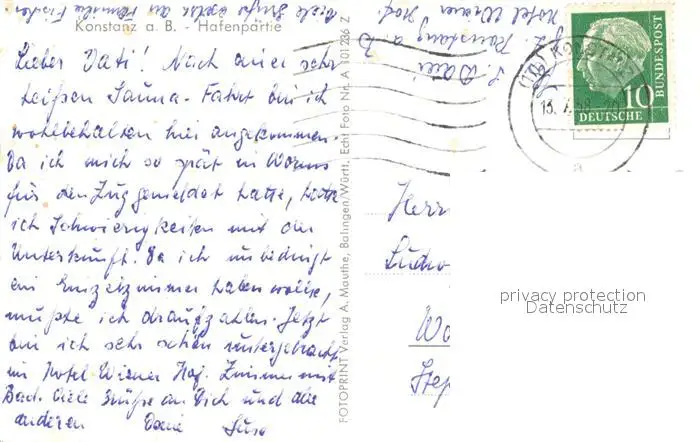 Viele Grüße extra an Familie
Konstanz a. B. - Hafenpartie
Lieber Vati! Nach einer sehr
heißen Sauna-Fahrt bin ich
wohlbehalten hier angekommen.
Da ich mich so spät in Worms
für den Zug gemeldet hatte, hatte
ich Schwierigkeiten mit der
Unterkunft. Da ich unbedingt
ein Einzelzimmer haben wollte,
mußte ich draufzahlen. Jetzt
bin ich sehr schön untergebracht
im Hotel Wiener Hof. Zimmer mit
Bad. Viele Grüße an Dich und die
anderen Deine Suse
FOTOPRINT Verlag A. Mauthe, Balingen/Württ. Echt Foto Nr. A 101236 Z
Konstanz a. B
Hotel Wiener Hof
KONSTANZ
DEUTSCHE
BUNDESPOST
10
Herrn
Ludw
Wo
privacy protection
Datenschutz